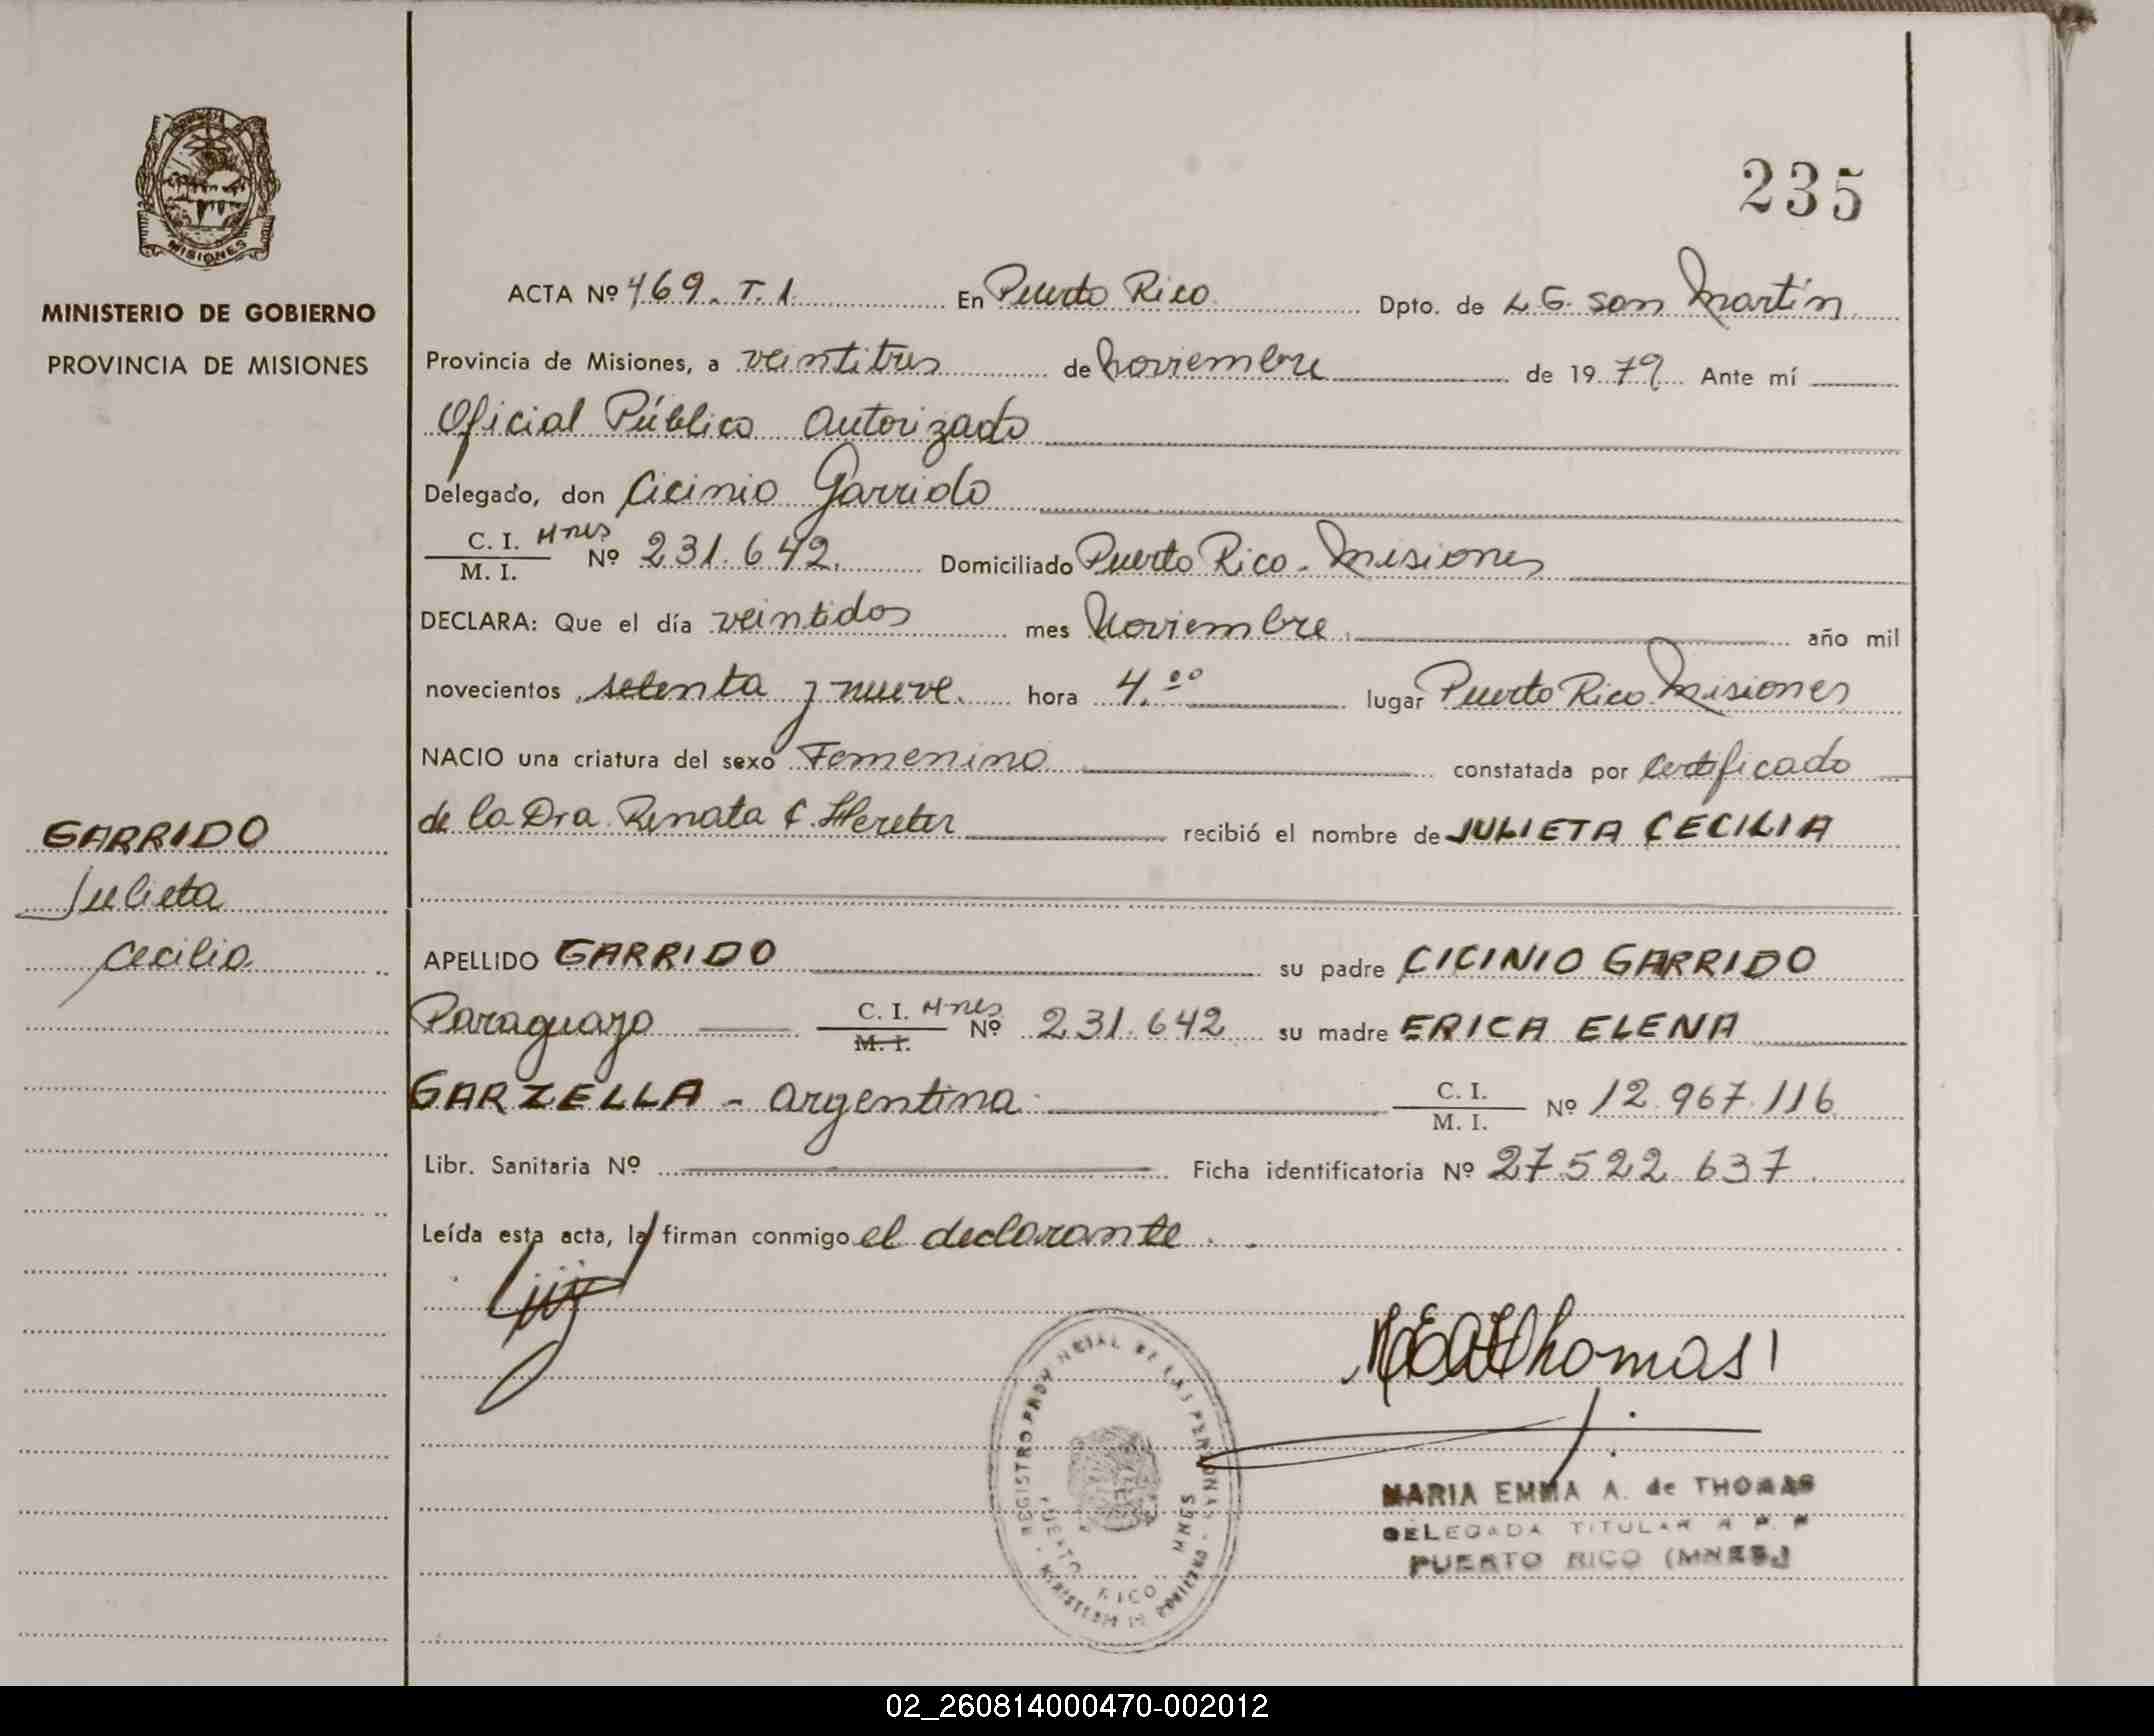 235
MISIONES
MINISTERIO DE GOBIERNO
PROVINCIA DE MISIONES
GARRIDO
Julieta
Cecilia
ACTA Nº 469. T. 1. En Puerto Rico Dpto. de L. G. San Martín
Provincia de Misiones, a veintitres de noviembre de 1979 Ante mí
Oficial Público Autorizado
Delegado, don Cicinio Garrido
C. I. Mnes
M. I. Nº 231.642. Domiciliado Puerto Rico - Misiones
DECLARA: Que el día veintidos mes Noviembre. año mil
novecientos setenta y nueve. hora 4.ºº lugar Puerto Rico Misiones
NACIO una criatura del sexo Femenino constatada por certificado
de la Dra. Renata recibió el nombre de JULIETA CECILIA
APELLIDO GARRIDO su padre CICINIO GARRIDO
Paraguayo C. I. Mnes M. I. Nº 231.642 su madre ERICA ELENA
GARZELLA - argentina C. I. M. I. Nº 12.967.116
Libr. Sanitaria Nº Ficha identificatoria Nº 27.522.637
Leída esta acta, la firman conmigo el declarante.
Thomas
REGISTRO PROVINCIAL DE LAS PERSONAS
PUERTO RICO MNES
MARIA EMMA A. de THOMAS
DELEGADA TITULAR R. P. P.
PUERTO RICO (MNES.)
02_260814000470-002012